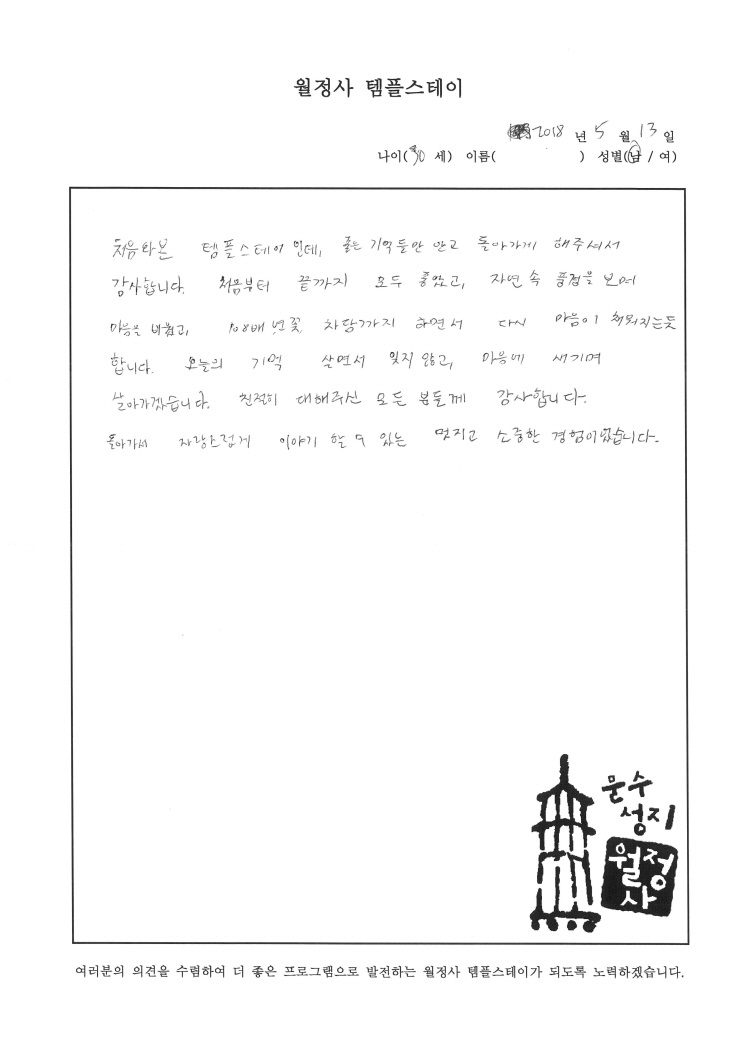 월정사 템플스테이
2018 년 5 월 13 일
나이(30 세) 이름( ) 성별(남 / 여)
처음와본 템플스테이 인데, 좋은 기억들만 안고 돌아가게 해주셔서
감사합니다. 처음부터 끝까지 모두 좋았고, 자연 속 풍경을 보며
마음을 비웠고, 108배 연꽃 차담까지 하면서 다시 마음이 채워지는듯
합니다. 오늘의 기억 살면서 잊지 않고, 마음에 새기며
살아가겠습니다. 친절히 대해주신 모든 분들께 감사합니다.
돌아가서 자랑스럽게 이야기 할 수 있는 멋지고 소중한 경험이었습니다.
문수
성지
월정
사
여러분의 의견을 수렴하여 더 좋은 프로그램으로 발전하는 월정사 템플스테이가 되도록 노력하겠습니다.